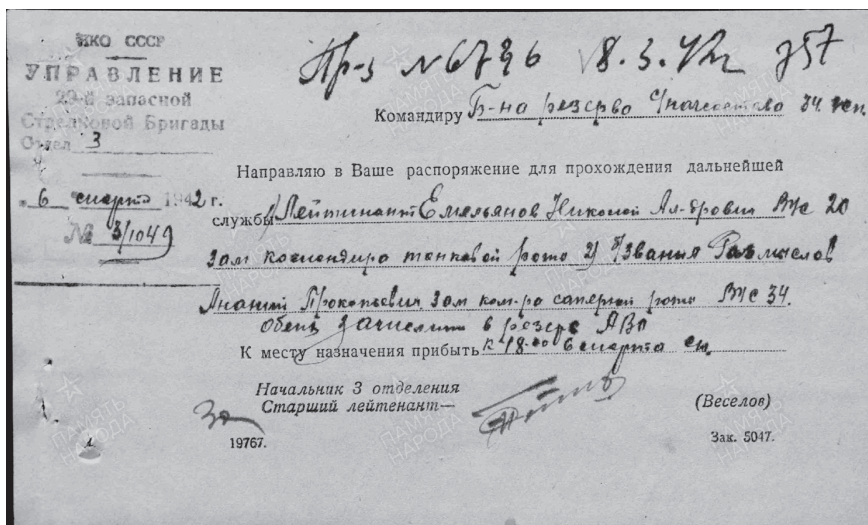 НКО СССР
УПРАВЛЕНИЕ
29-й запасной
Стрелковой Бригады
Отдел 3
6 марта 1942 г.
№ 3/1049
Пр-з N 8.3.42 357
Командиру Б-на резерва Начсостава
Направляю в Ваше распоряжение для прохождения дальнейшей
службы Лейтинант Емельянов Николай Ал-дрович ВУС 20
Зам командира танковой роты 2) б/звания
Прокопьевич Зам ком-ра саперной роты ВУС 34.
Обеих зачислить в резерв
К месту назначения прибыть к 18-00 6 марта
Начальник 3 отделения
Старший лейтенант—
(Веселов)
19767.
Зак. 5047.
ПАМЯТЬ НАРОДА